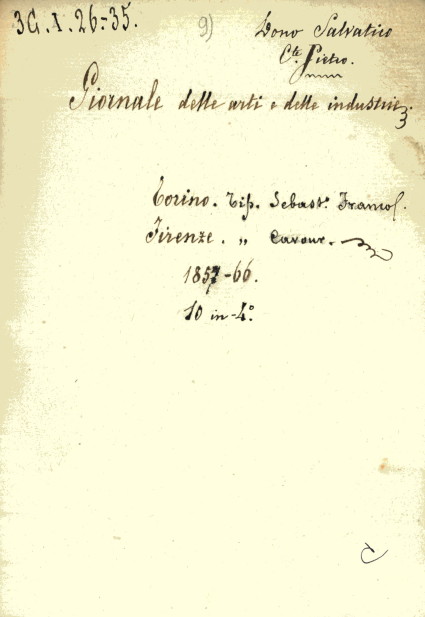 3G.I.26-35.
9)
Dono Salvatico
Cte Pietro.
Giornale delle arti e delle industrie.
Torino. Tip. Sebast. Franco.
Firenze. „ Cavour.
1857-66.
10 in-4°
C